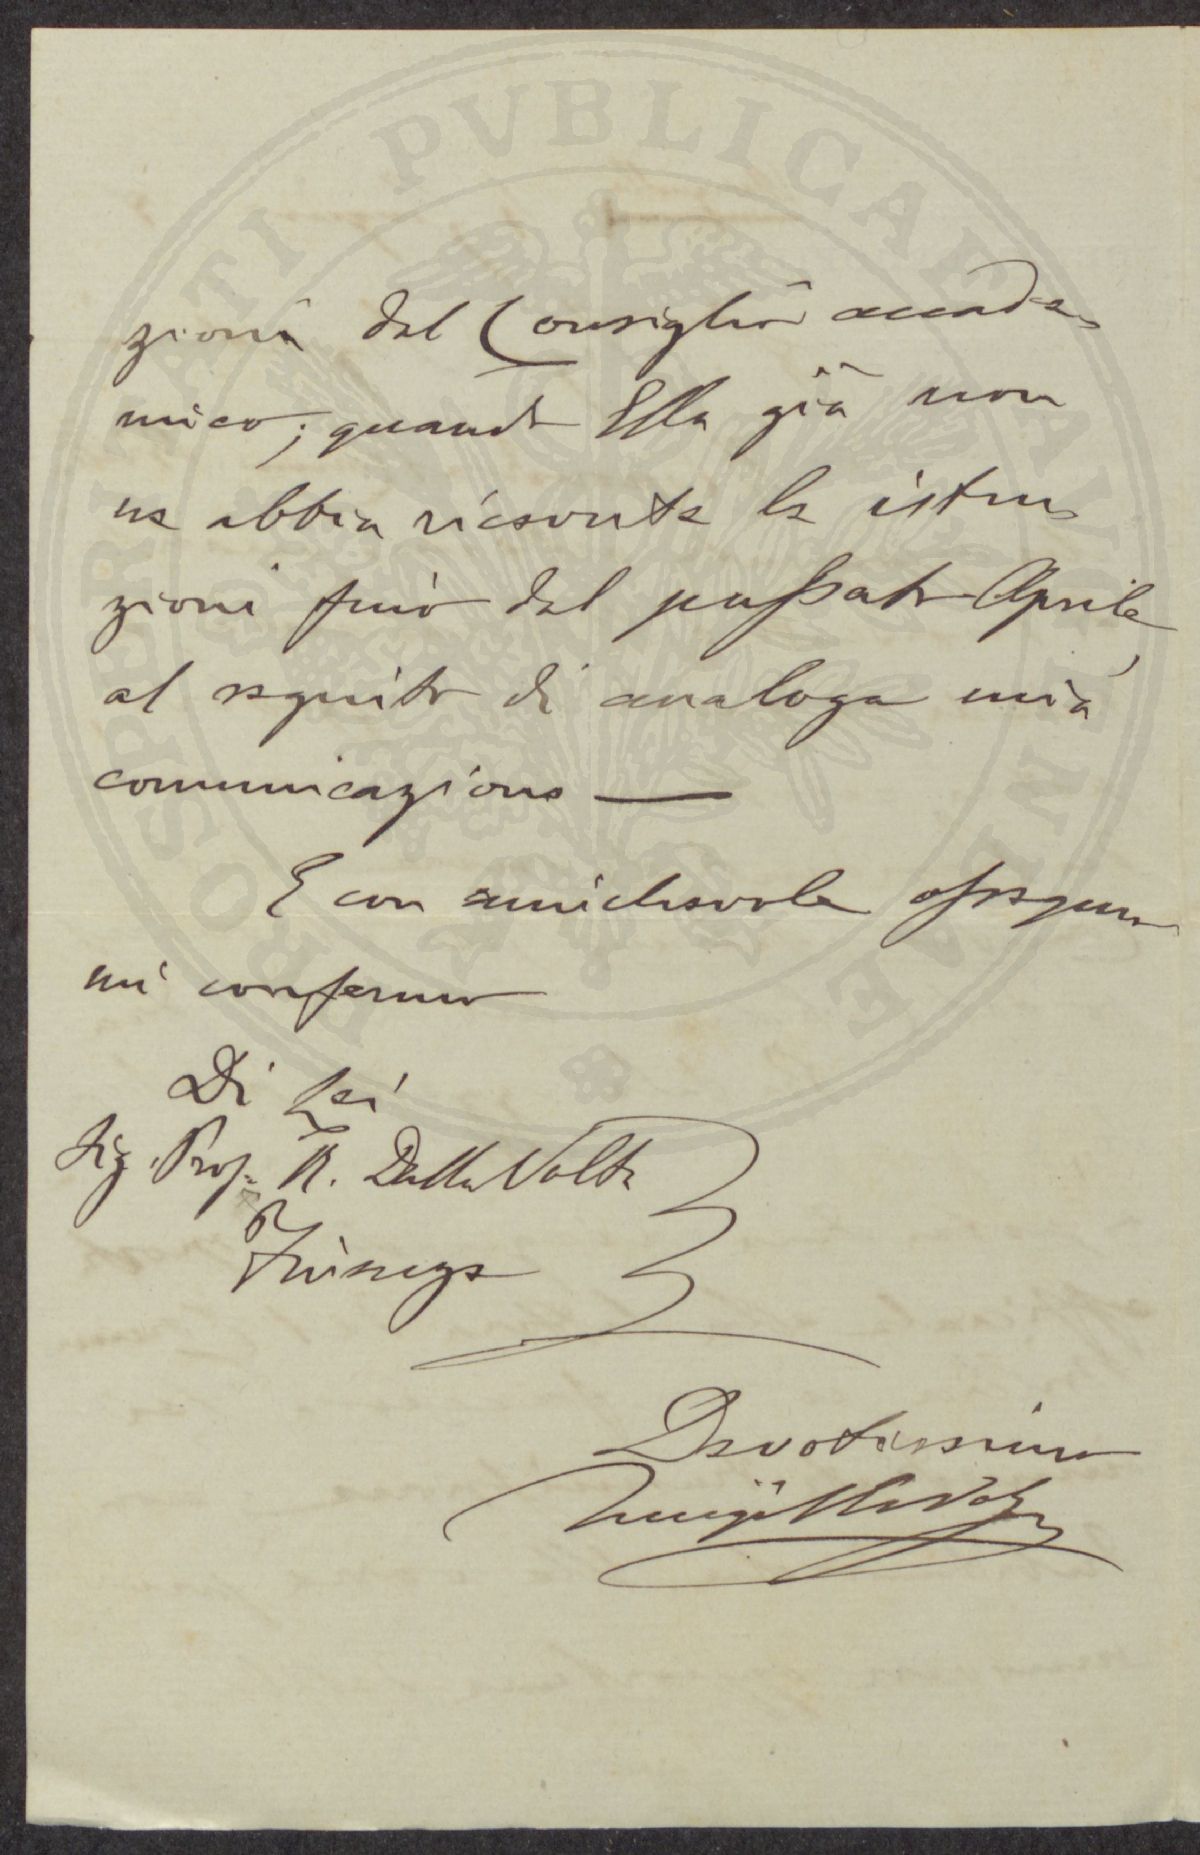 PROSPERITATI PVBLICAE AVGENDAE
zioni del Consiglio accade-
mico; quando Ella già non
ne abbia ricevute le istru-
zioni fino dal passato Aprile,
al seguito di analoga mia
comunicazione —
E con amichevole ossequio
mi confermo
Di Lei
Sig. Prof. R. Dalla Volta
Firenze
Devotissimo
Luigi